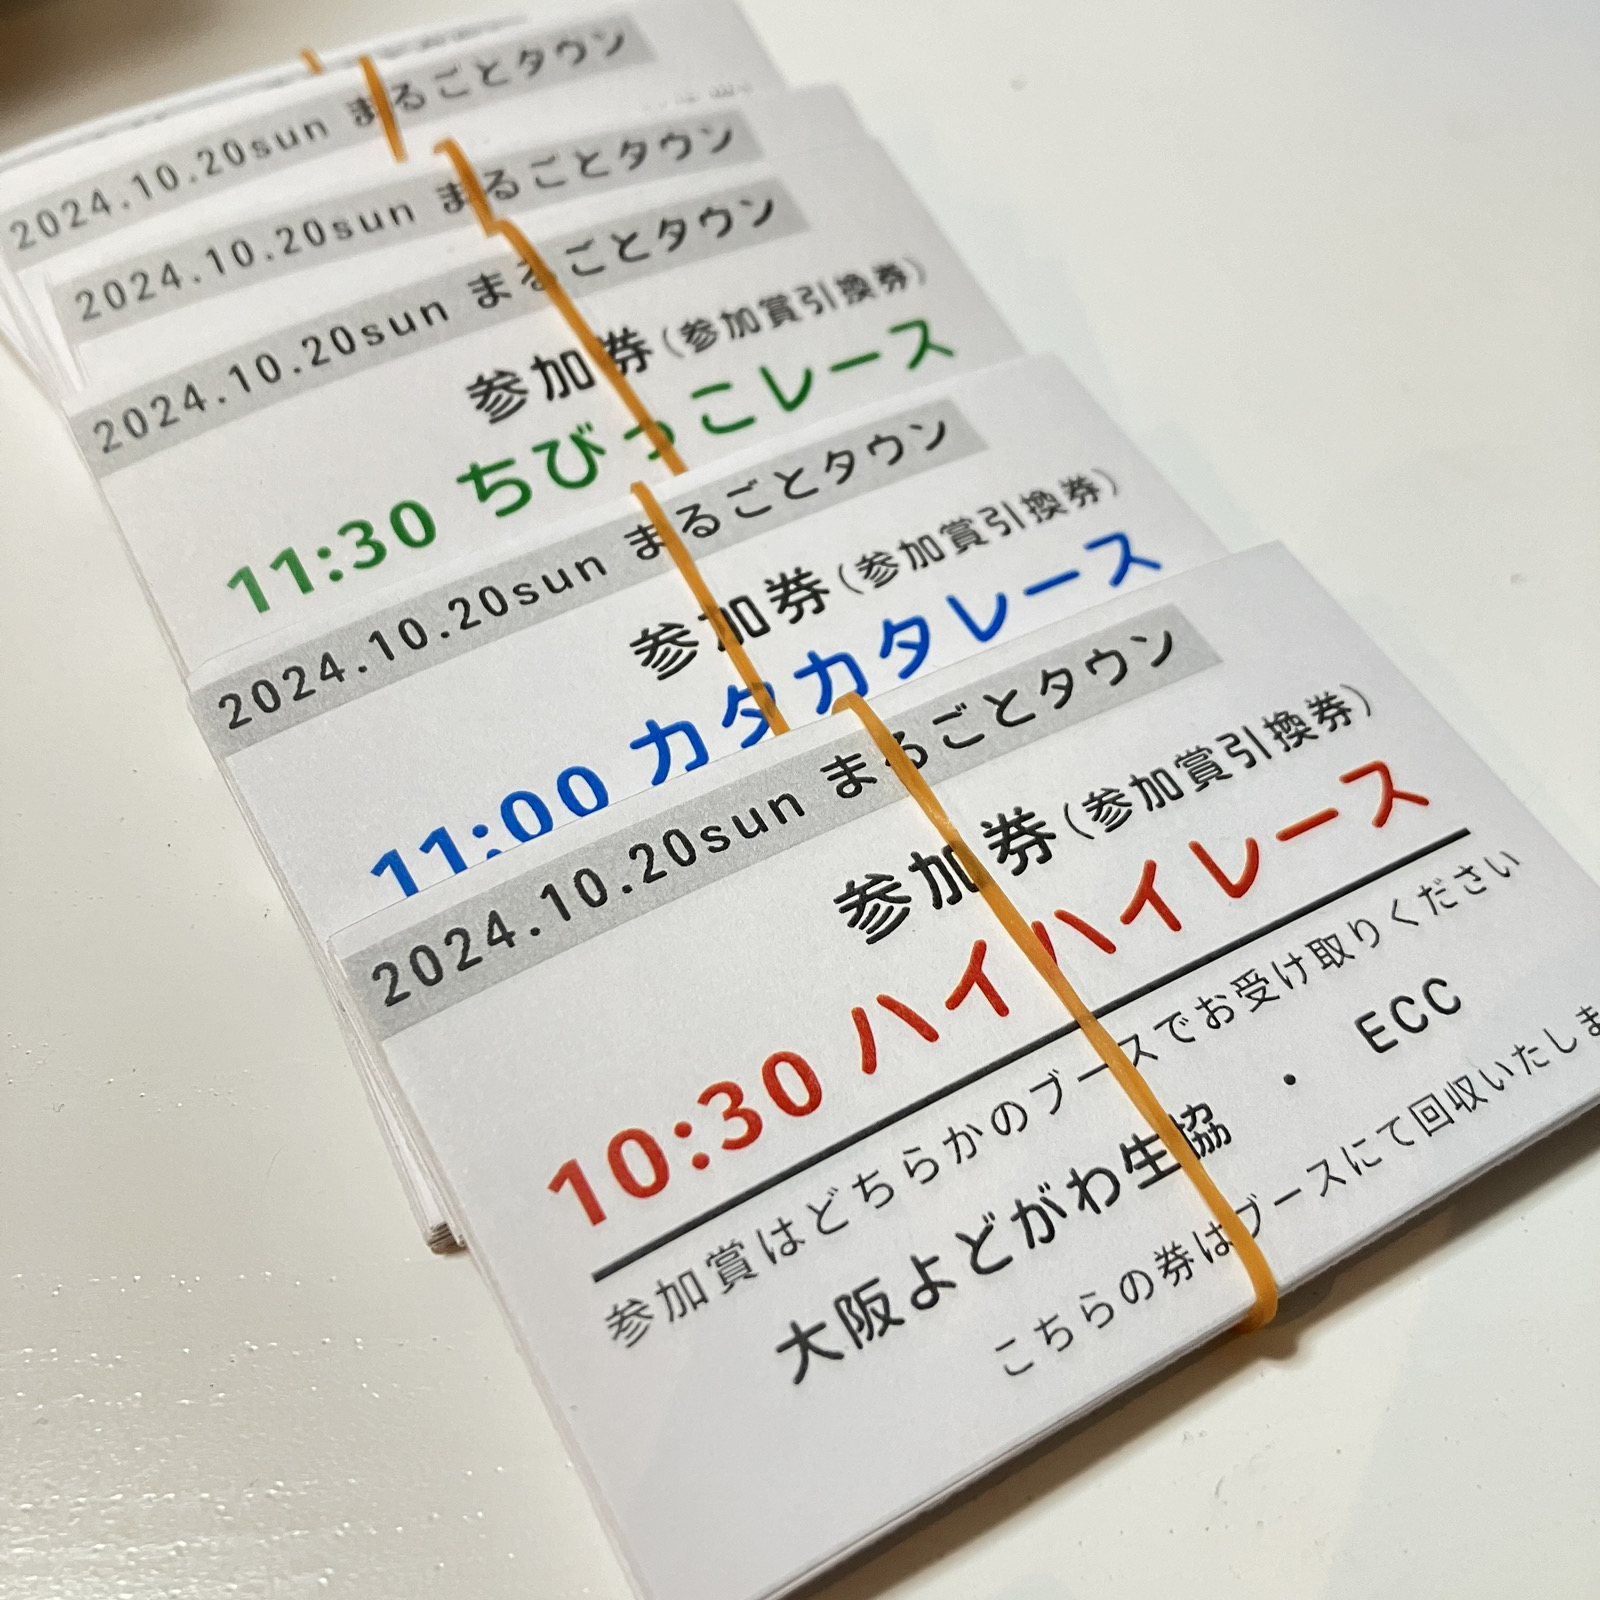 2024.10.20sun まるごとタウン
2024.10.20sun まるごとタウン
2024.10.20sun まるごとタウン
参加券(参加賞引換券)
11:30 ちびっこレース
2024.10.20sun まるごとタウン
参加券(参加賞引換券)
11:00 カタカタレース
2024.10.20sun まるごとタウン
参加券(参加賞引換券)
10:30 ハイハイレース
参加賞はどちらかのブースでお受け取りください
大阪よどがわ生協 ・ ECC
こちらの券はブースにて回収いたしま